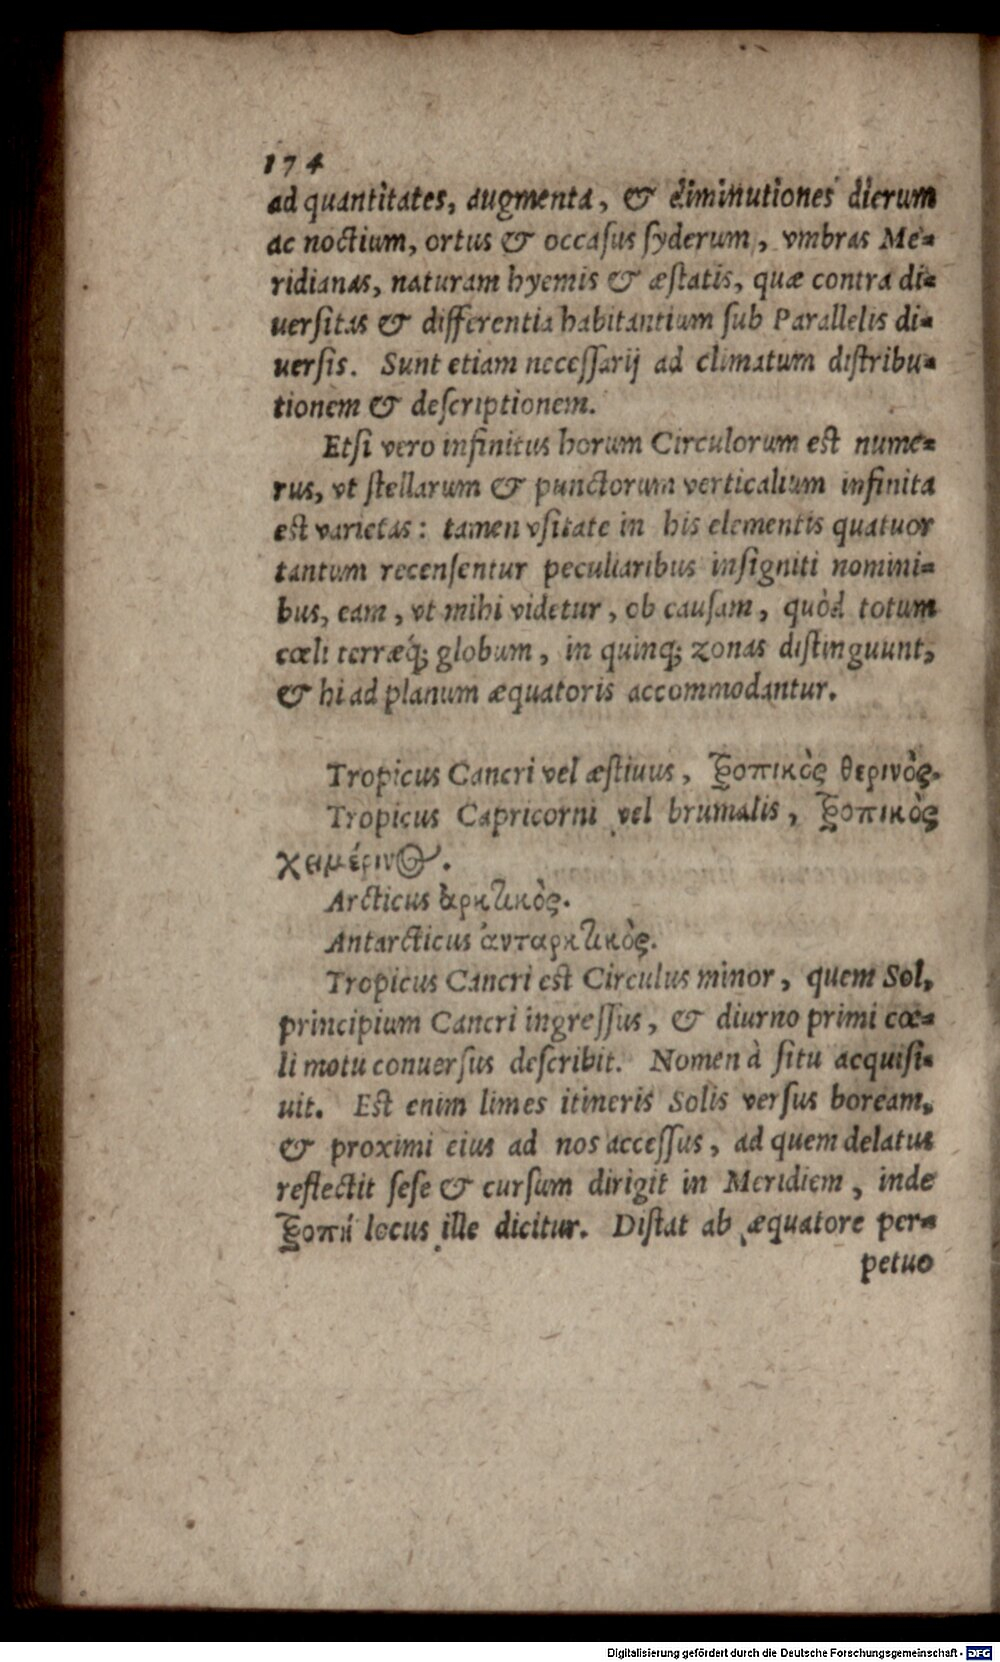 174
ad quantitates, augmenta, & diminutiones dierum
ac noctium, ortus & occasus syderum, vmbras Me-
ridianas, naturam hyemis & æstatis, quæ contra di-
uersitas & differentia habitantium sub Parallelis di-
uersis. Sunt etiam necessarij ad climatum distribu-
tionem & descriptionem.
Etsi vero infinitus horum Circulorum est nume-
rus, vt stellarum & punctorum verticalium infinita
est varietas: tamen vsitate in his elementis quatuor
tantum recensentur peculiaribus insigniti nomini-
bus, eam, vt mihi videtur, ob causam, quòd totum
cœli terræq́; globum, in quinq; zonas distinguunt,
& hi ad planum æquatoris accommodantur.
Tropicus Cancri vel æstiuus, τροπικὸς θερινὸς.
Tropicus Capricorni vel brumalis, τροπικὸς
χειμέρινος.
Arcticus ἀρκτικὸς.
Antarcticus ἀνταρκτικὸς.
Tropicus Cancri est Circulus minor, quem Sol,
principium Cancri ingressus, & diurno primi cœ-
li motu conuersus describit. Nomen à situ acquisi-
uit. Est enim limes itineris Solis versus boream,
& proximi eius ad nos accessus, ad quem delatus
reflectit sese & cursum dirigit in Meridiem, inde
τροπὴ locus ille dicitur. Distat ab æquatore per-
petuo
Digitalisierung gefördert durch die Deutsche Forschungsgemeinschaft - DFG